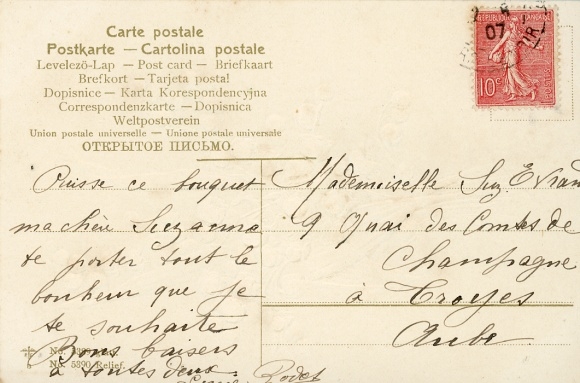 Carte postale
Postkarte — Cartolina postale
Levelezö-Lap — Post card — Briefkaart
Brefkort — Tarjeta postal
Dopisnice — Karta Korespondencyjna
Correspondenzkarte — Dopisnica
Weltpostverein
Union postale universelle — Unione postale universale
ОТКРЫТОЕ ПИСЬМО.
REPUBLIQUE FRANÇAISE
10c
07
Puisse ce bouquet
ma chère Suzanne
te porter tout le
bonheur que je
te souhaite
Bons baisers
à toutes deux
Rodet
No. 5390 Relief.
Mademoiselle Suz. Evrard
9 Quai des Comtes de
Champagne
à Troyes
Aube